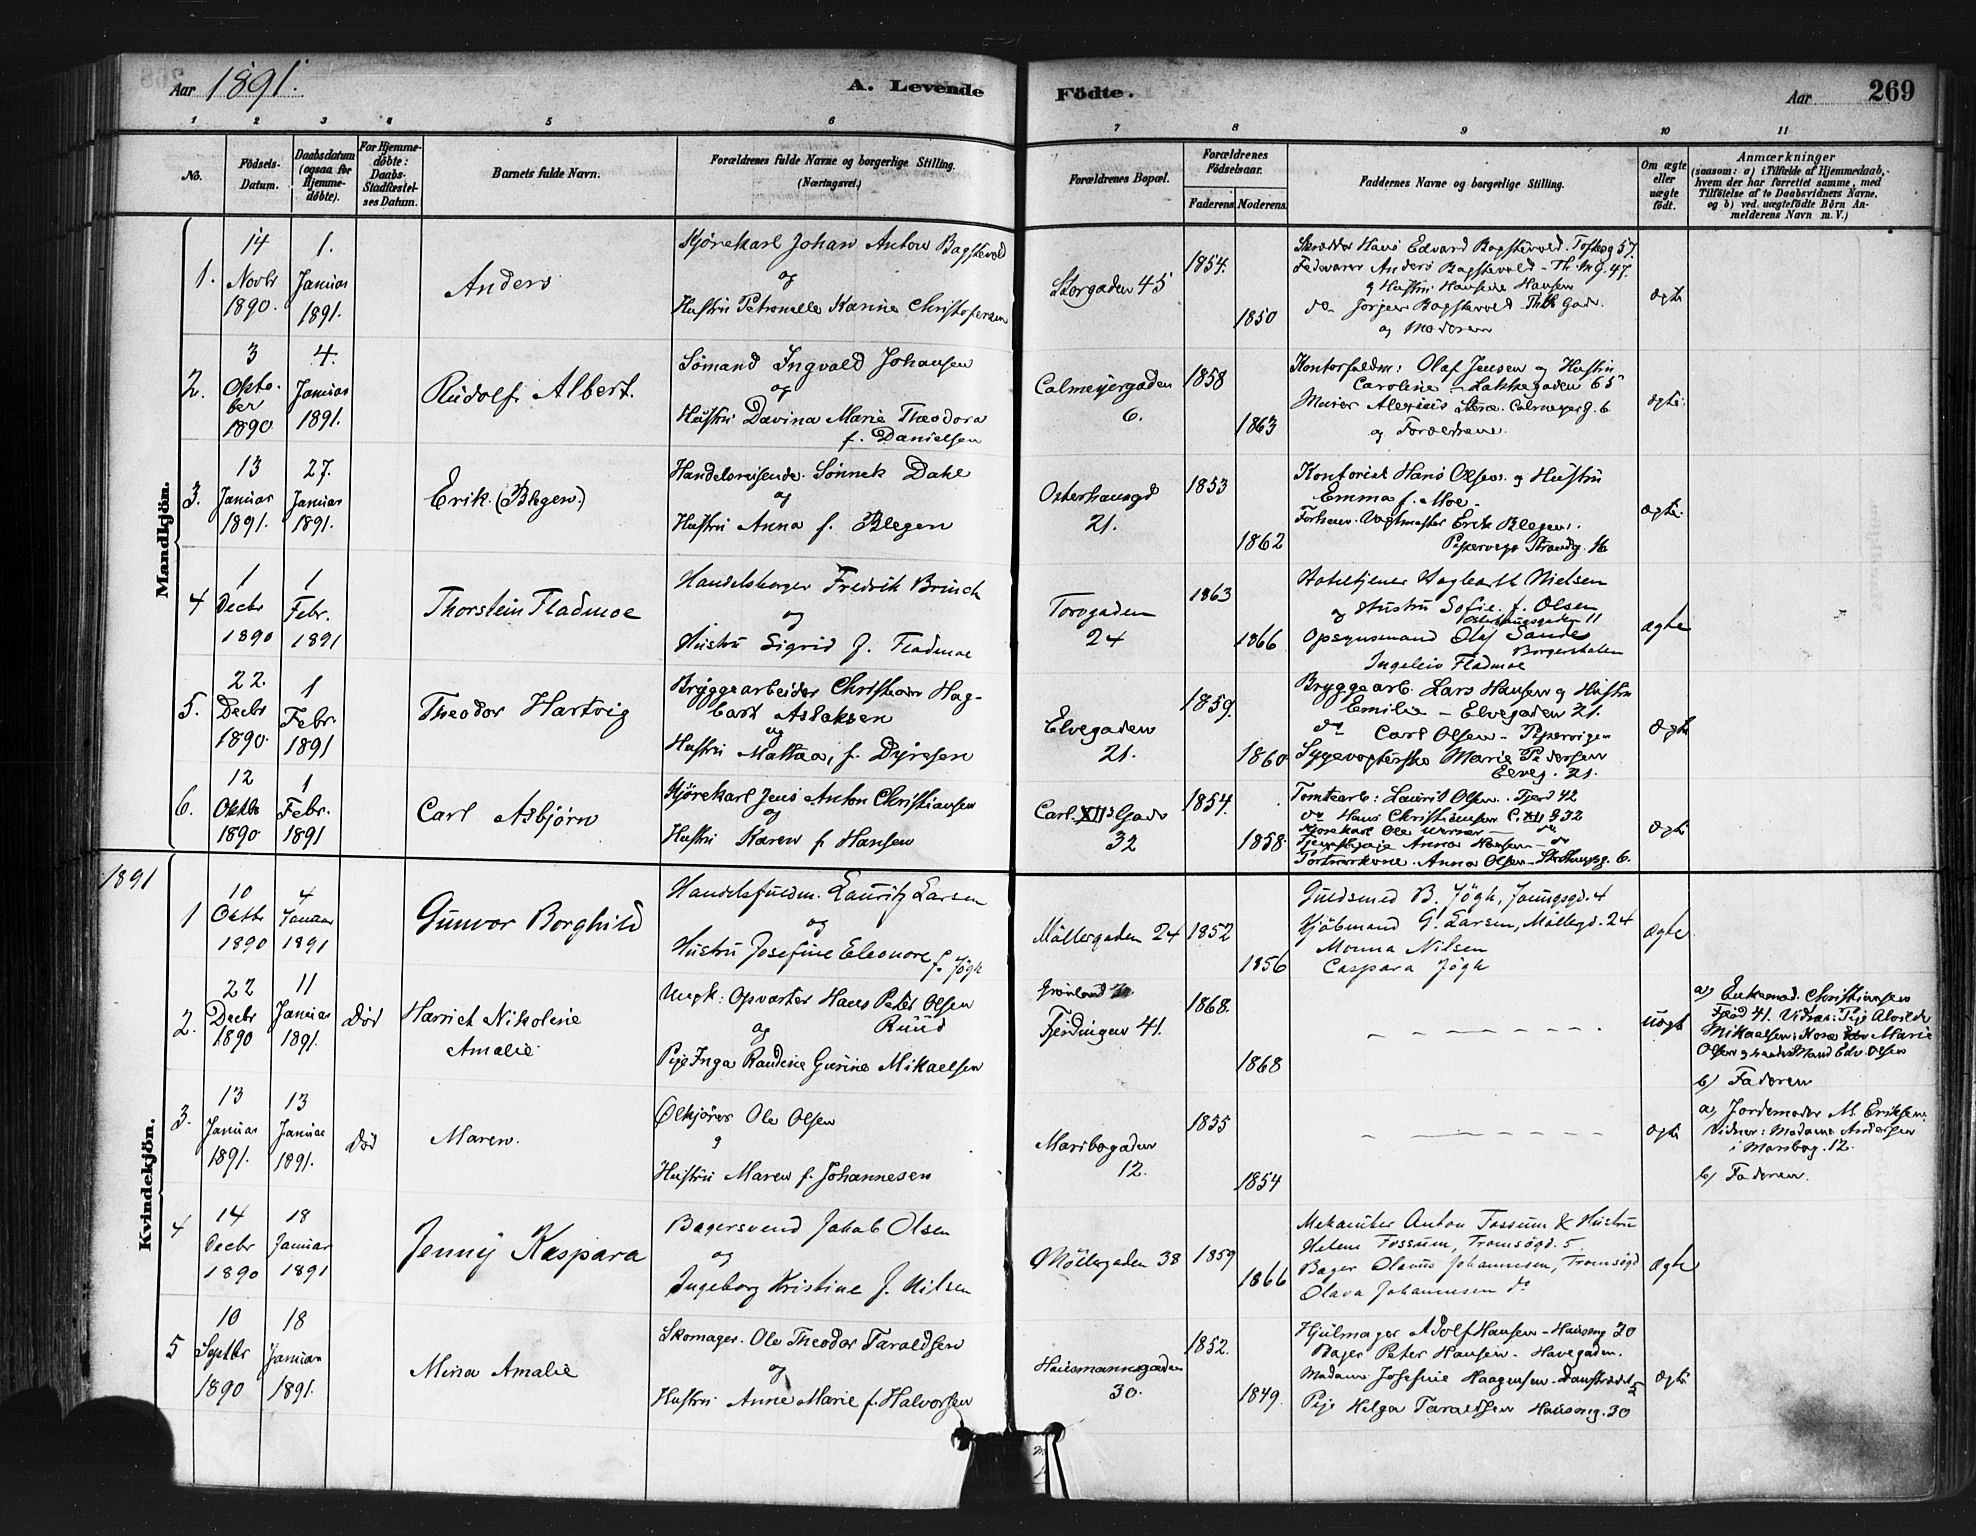 Aar 1891. A. Levende Födte. Aar 269
1 2 3 4 5 6 7 8 9 10 11
No.
Födsels-Datum.
Daabsdatum (ogsaa for Hjemmedöbte).
For Hjemmedöbte: Daabs-Stadfæstelses Datum.
Barnets fulde Navn.
Forældrenes fulde Navne og borgerlige Stilling.
(Næringsvei.)
Forældrenes Bopæl.
Forældrenes Födselsaar.
Faderens. Moderens.
Faddernes Navne og borgerlige Stilling.
Om ægte eller uægte födt.
Anmærkninger
(saasom: a) i Tilfælde af Hjemmedaab, hvem der har forrettet samme, med Tilföielse af to Daabsvidners Navne, og b) ved uægtefödte Börn Anmelderens Navn m. V.)
Mandkjön.
1. 14 Novbr 1890. 1. Januar 1891. Anders
Kjørekarl Johan Anton Bagstevold
og
Hustru Petronelle Karine Christofersen
Storgaden 45 1854. 1850
Skrædder Hans Edvard Bagstevold. Toftesg 57.
Fedevarer Anders Bagstevold - Th. M. G. 47.
og Hustru Hansine Hansen
do Jørgen Bagstevold
og Moderen
ægte
2. 3 Oktober 1890 4. Januar 1891. Rudolf Albert.
Sömand Ingvald Johansen
og
Hustru Davina Marie Theodora
f. Danielsen
Calmeyergaden 6. 1858 1863
Kontorfuldm: Olaf Jensen og Hustru
Caroline - Lakkegaden 65
Murer Alexius Calmeyerg. 6
og Forældrene.
ægte.
3. 13 Januar 1891. 27. Januar 1891. Erik (Blegen)
Handelsreisende Sönnek Dahl
og
Hustru Anna f. Blegen
Osterhausgd 21. 1853 1862
Kontorist Hans Olsen og Hustru
Emma f. Moe -
Forhenv. Vagtmester Erik Blegen.
Pipervigs Strandg.
ægte.
4 1 Decbr 1890 1 Febr. 1891 Thorstein Fladmoe
Handelsborger Fredrik Brunch
og
Hustru Sigrid f. Fladmoe
Torvgaden 24 1863 1866
Hoteltjener Hagbarth Nielsen
og Hustru Sofie f. Olsen,
Osterhausgaden 11
Opsynsmand Olaf Sande
Borgerskolen
Ingeleiv Fladmoe
ægte
5. 22. Decbr 1890. 1 Febr. 1891 Theodor Hartvig
Bryggearbeider Christian Hagbart Aslaksen
og
Hustru Mattea, f. Dyresen
Elvegaden 21. 1859. 1860
Bryggearb. Lars Hansen og Hustru
Emilie - Elvegaden 21.
do Carl Olsen - Pipervigen
Sygevogterske Marie Pedersen
Elveg. 21.
ægte
6. 12 Oktbr 1890 1 Febr. 1891 Carl Asbjørn
Kjørekarl Jens Anton Christiansen
og
Hustru Karen f Hansen
Carl XIIs Gade 32 1854. 1858.
Tomtearb: Laurits Olsen. Fjerd 42
do Hans Christiansen C. XII g 32
Kjørekarl Ole Werner - do
Tjenestepige Anna Hansen - do
Portnerkone. Anna Olsen - 6.
ægte
1891
Kvindekjön.
1 10 Oktbr 1890 4 Januar 1891 Gunvor Borghild
Handelsfuldm. Lauritz Larsen
og
Hustru Josefine Eleonore f. Jøgh
Møllergaden 24 1852 1856
Guldsmed B. Jøgh, 4
Kjøbmand G. Larsen, Møllergd. 24
Monna Nilsen
Caspara Jøgh
ægte
2. 22 Decbr 1890 11 Januar 1891. Død Harriet Nikoline
Amalie
Ungk: Opvarter Hans Peter Olsen
og Ruud
Pige Inga Randine Gurine Mikaelsen
Grønland
Fjerdingen 41. 1868. 1868
uægt
a) Enkemad. Christiansen
Fjerd 41. Vidner: Pige Alvilde
Mikaelsen Marie
Olsen
b) Faderen
3. 13 Januar 1891. 13 Januar 1891. Død Maren.
Ølkjører Ole Olsen
og
Hustru Maren f. Johannesen
Maribogaden 12. 1855 1854
ægte
a) Jordemoder M. Eriksen.
Vidner: Madame Andersen
i Maribog. 12.
b) Faderen.
4 14 Decbr 1890 18 Januar 1891 Jenny Kaspara
Bagersvend Jakob Olsen
og
Ingeborg Kristine f. Nilsen
Möllergaden 38 1859 1866
Mekaniker Anton Fossum & Hustru
Helene Fossum, Tromsøgd. 5
Bager Olavus Johannesen, Tromsøgd
Olava Johannesen do
Ægte
5 10 Septbr 1890 18 Januar 1891. Mina Amalie
Skomager. Ole Theodor Taraldsen
og
Hustru Anne Marie f. Halvorsen
Hausmannsgaden 30. 1852. 1849.
Hjulmager Adolf Hansen - Hausmg 30
Bager Peter Hansen - Havegaden.
Madam Josefine Haagensen - Danstrædet 5
Pige Helga Taraldsen Hausmg. 30
ægte